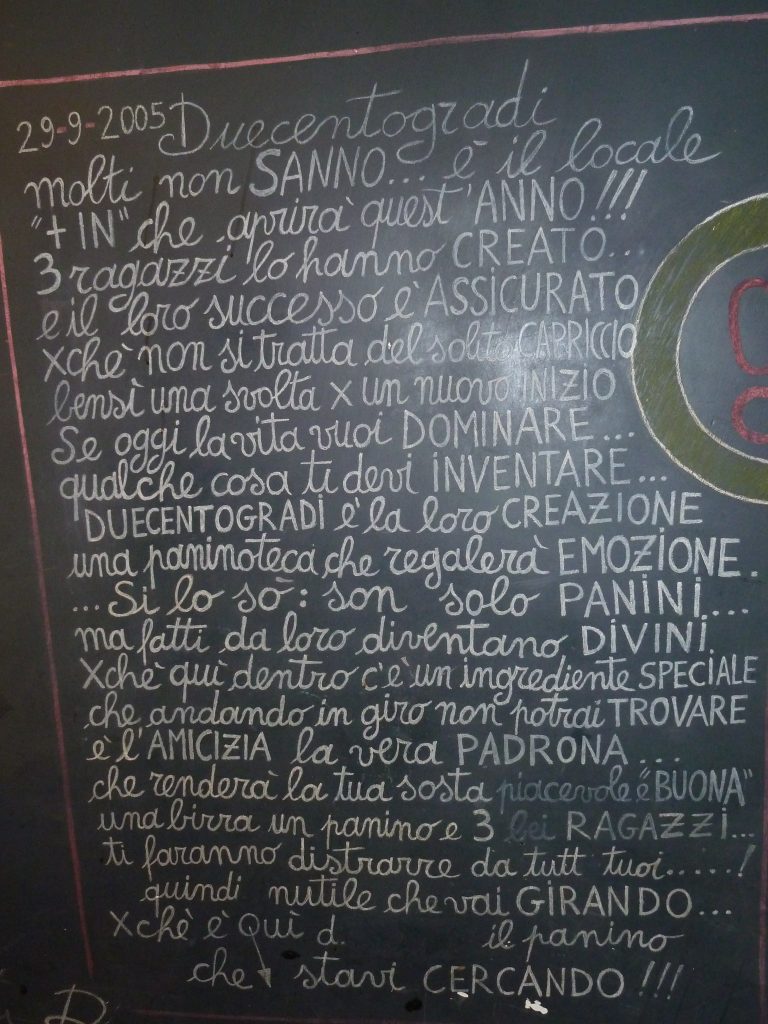 29-9-2005 Duecentogradi
molti non SANNO... è il locale
"+ IN" che aprirà quest'ANNO!!!
3 ragazzi lo hanno CREATO...
e il loro successo è ASSICURATO
xchè non si tratta del solito CAPRICCIO
bensì una svolta x un nuovo INIZIO
Se oggi la vita vuoi DOMINARE...
qualche cosa ti devi INVENTARE...
DUECENTOGRADI è la loro CREAZIONE
una paninoteca che regalerà EMOZIONE.
...Si lo sò: son solo PANINI...
ma fatti da loro diventano DIVINI.
Xchè quì dentro c'è un ingrediente SPECIALE
che andando in giro non potrai TROVARE
è l'AMICIZIA la vera PADRONA...
che renderà la tua sosta piacevole e "BUONA"
una birra un panino e 3 bei RAGAZZI...
ti faranno distrarre da tutt tuoi.....!
quindi nutile che vai GIRANDO...
Xchè è QUÌ d. il panino
che stavi CERCANDO!!!